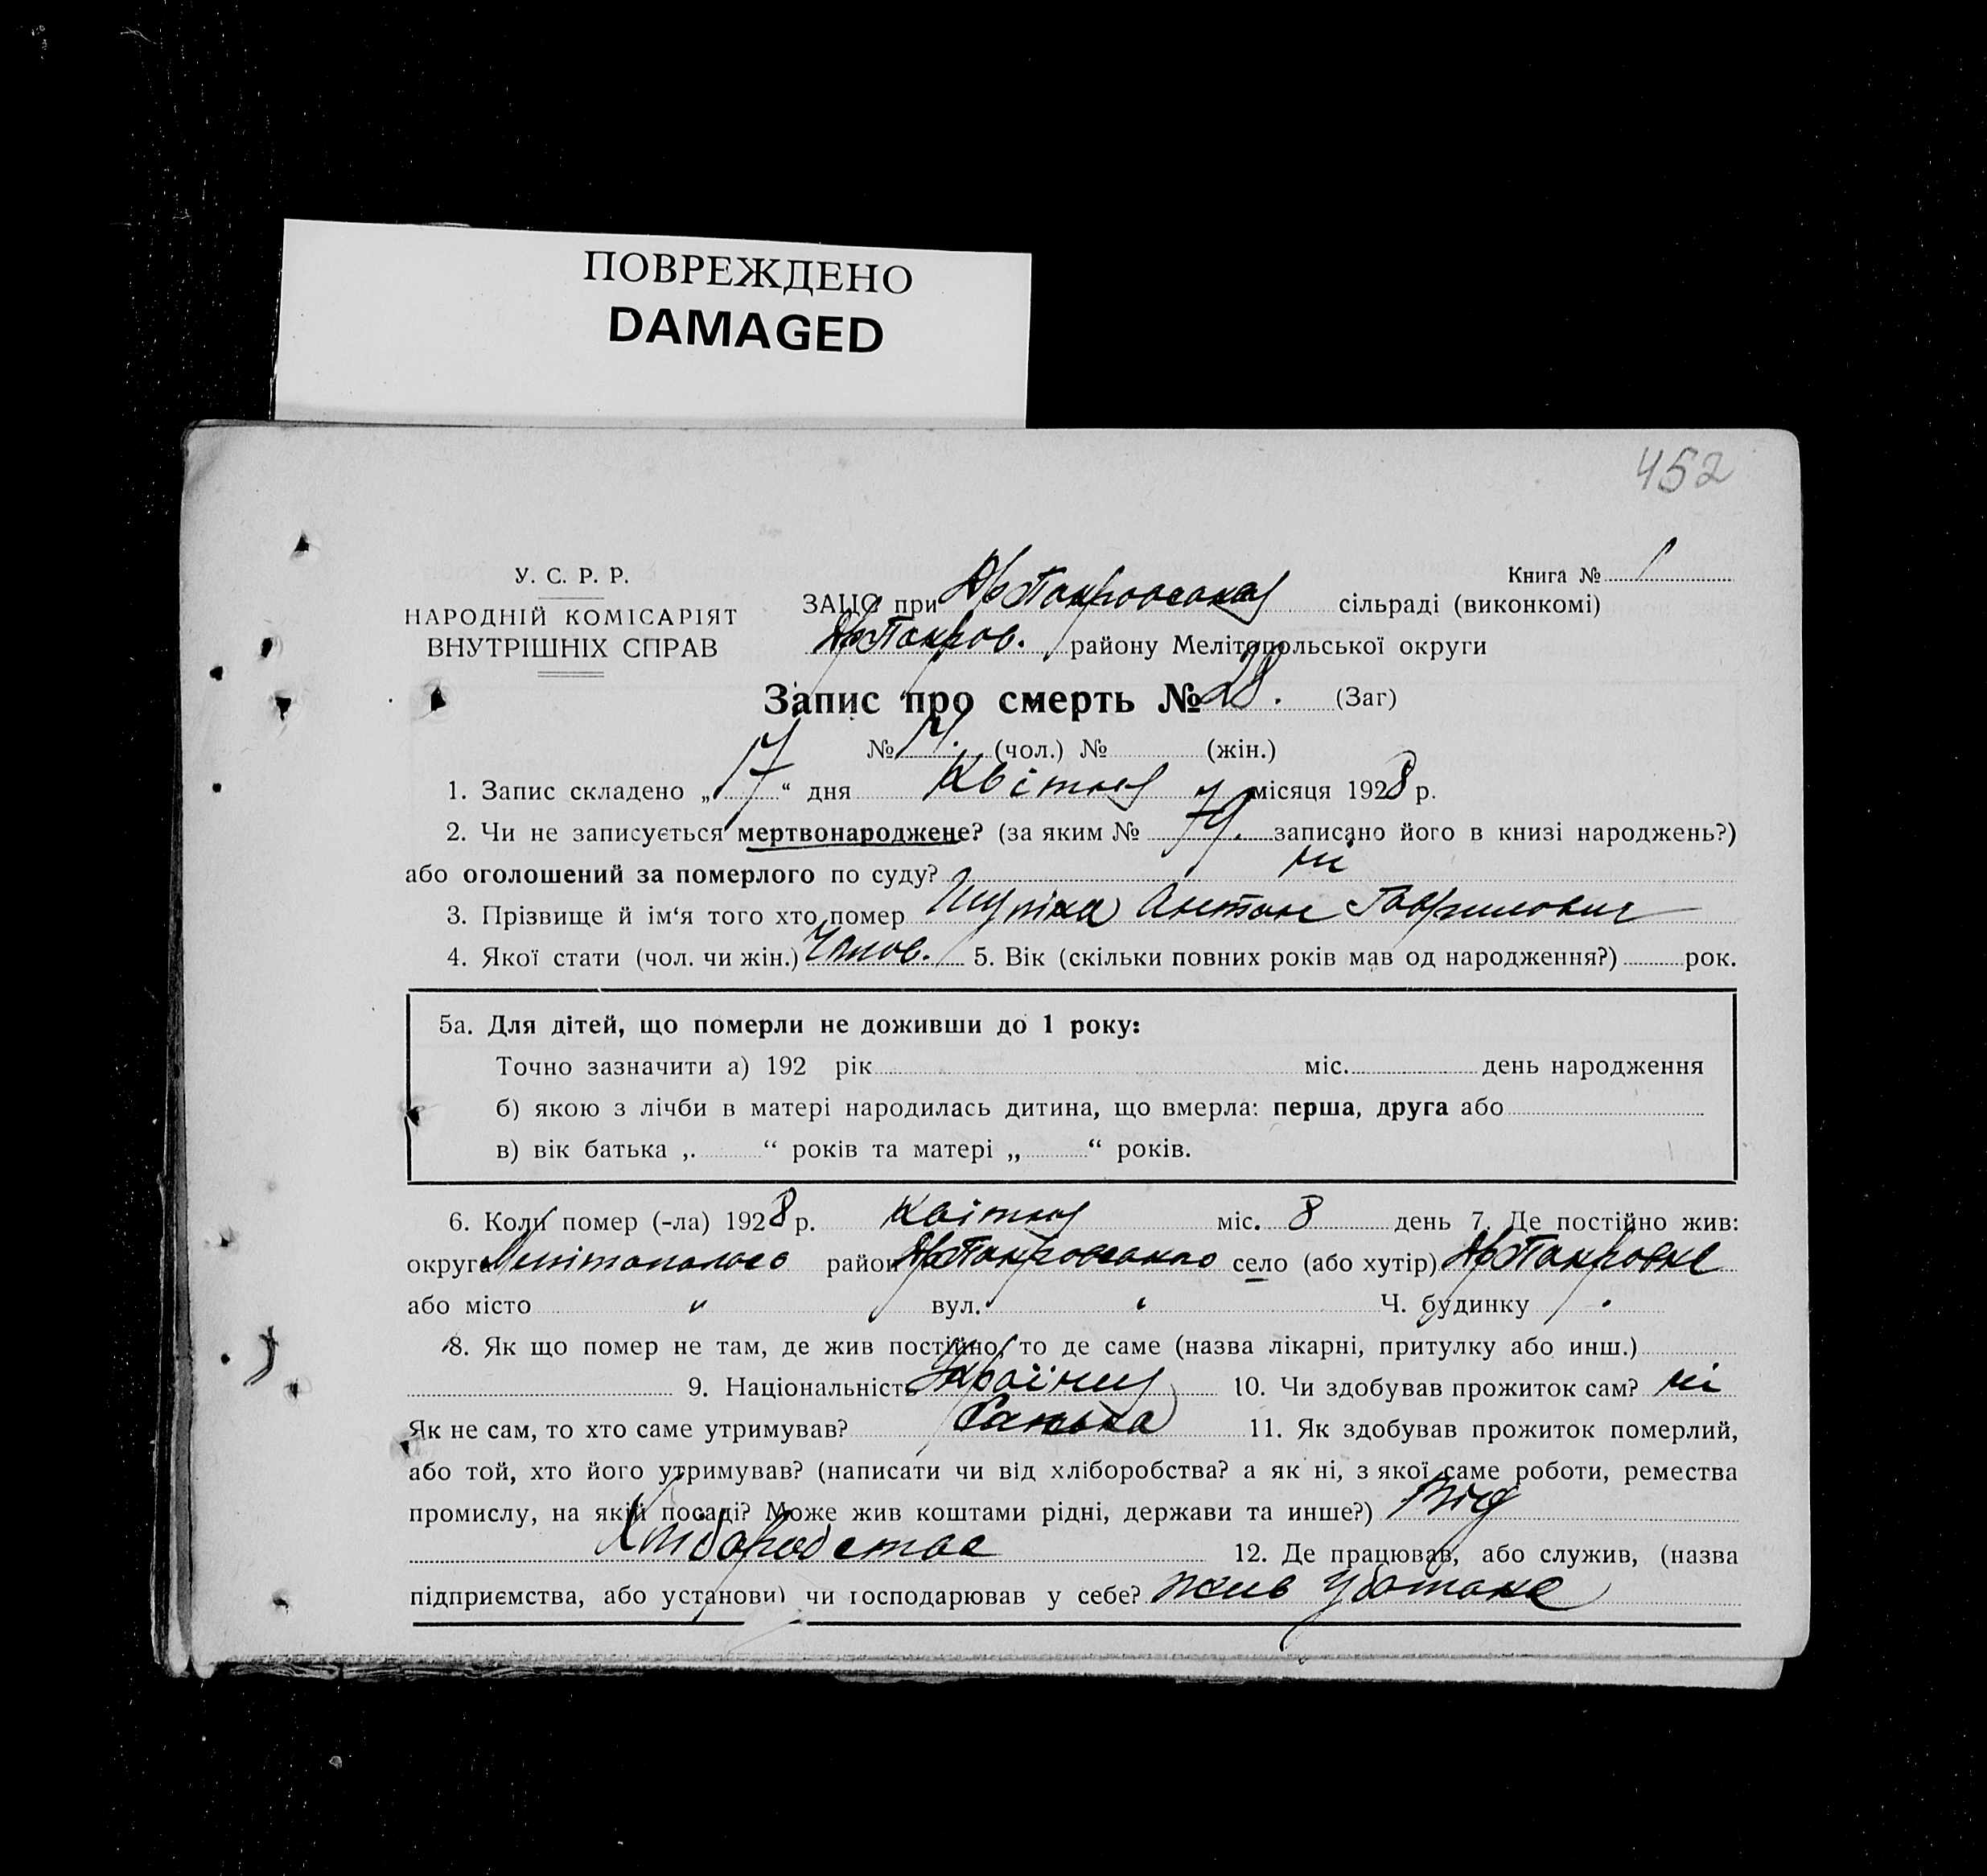 ПОВРЕЖДЕНО
DAMAGED
452
У. С. Р. Р.
НАРОДНІЙ КОМІСАРІЯТ
ВНУТРІШНІХ СПРАВ
Книга № 1
ЗАЦС при сільраді (виконкомі)
району Мелітопольської округи
Запис про смерть № 28. (Заг)
№ (чол.) № (жін.)
1. Запис складено „17“ дня Квітня місяця 1928 р.
2. Чи не записується мертвонароджене? (за яким № 79. записано його в книзі народжень?)
або оголошений за померлого по суду? ні
3. Прізвище й ім‘я того хто помер Антон Гаврилович
4. Якої стати (чол. чи жін.) Чолов. 5. Вік (скільки повних років мав од народження?) рок.
5а. Для дітей, що померли не доживши до 1 року:
Точно зазначити а) 192 рік міс. день народження
б) якою з лічби в матері народилась дитина, що вмерла: перша, друга або
в) вік батька „ “ років та матері „ “ років.
6. Коли помер (-ла) 1928 р. Квітня міс. 8 день 7. Де постійно жив:
округа район село (або хутір)
або місто " вул. " Ч. будинку "
8. Як що помер не там, де жив постійно, то де саме (назва лікарні, притулку або инш.)
9. Національність 10. Чи здобував прожиток сам? ні
Як не сам, то хто саме утримував? батько 11. Як здобував прожиток померлий,
або той, хто його утримував? (написати чи від хліборобства? а як ні, з якої саме роботи, ремества
промислу, на якій посаді? Може жив коштами рідні, держави та инше?) Від
Хліборобства 12. Де працював, або служив, (назва
підприємства, або установи) чи господарював у себе? жив